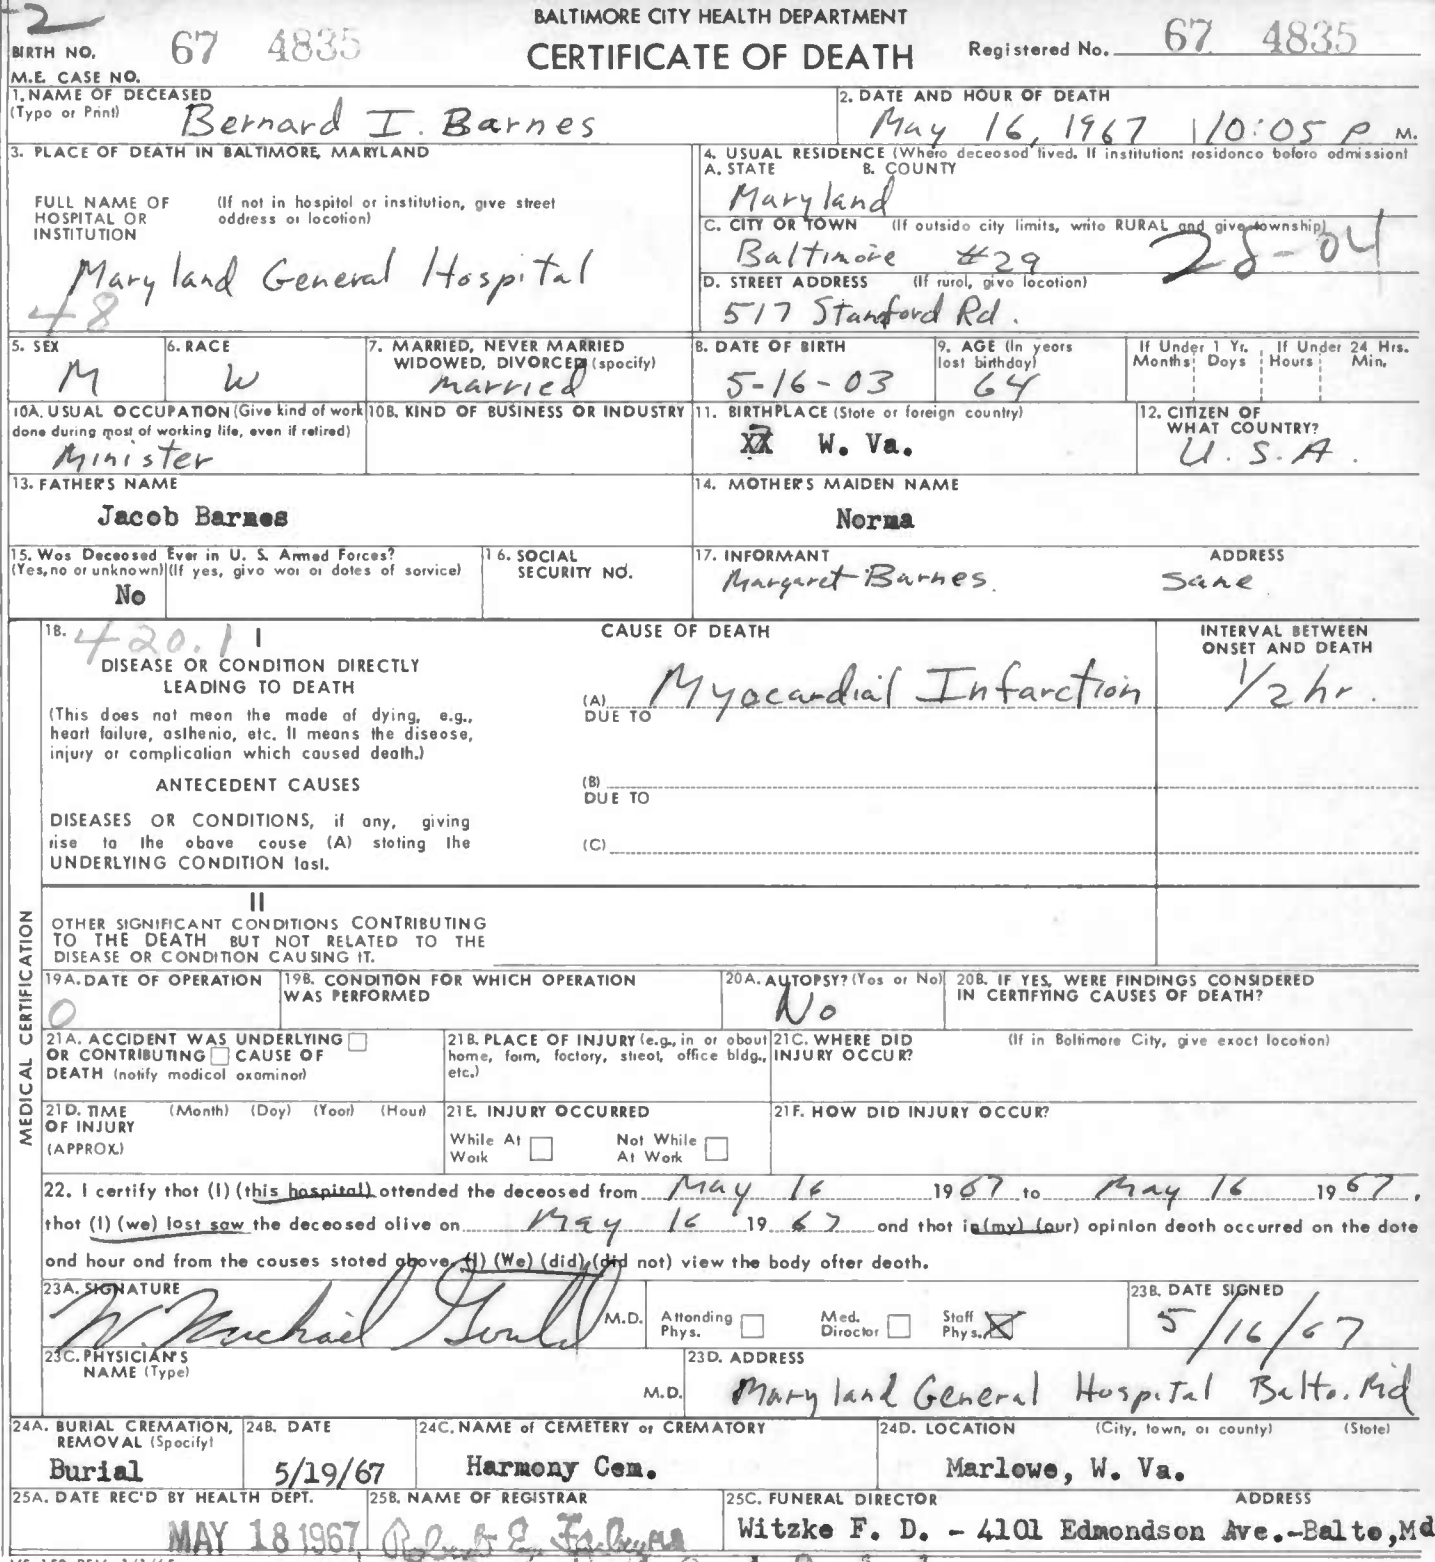 -2
BALTIMORE CITY HEALTH DEPARTMENT
CERTIFICATE OF DEATH
BIRTH NO. 67 4835
Registered No. 67 4835
M.E. CASE NO.
1. NAME OF DECEASED (Type or Print) Bernard I. Barnes
2. DATE AND HOUR OF DEATH May 16, 1967 10:05 P M.
3. PLACE OF DEATH IN BALTIMORE, MARYLAND
FULL NAME OF HOSPITAL OR INSTITUTION (If not in hospital or institution, give street address or location)
Maryland General Hospital
48
4. USUAL RESIDENCE (Where deceased lived. If institution: residence before admission)
A. STATE B. COUNTY
Maryland
C. CITY OR TOWN (If outside city limits, write RURAL and give township)
Baltimore #29 28-04
D. STREET ADDRESS (If rural, give location)
517 Stamford Rd.
5. SEX M
6. RACE W
7. MARRIED, NEVER MARRIED WIDOWED, DIVORCED (specify) married
8. DATE OF BIRTH 5-16-03
9. AGE (In years last birthday) 64
If Under 1 Yr. Months Days
If Under 24 Hrs. Hours Min.
10A. USUAL OCCUPATION (Give kind of work done during most of working life, even if retired) Minister
10B. KIND OF BUSINESS OR INDUSTRY
11. BIRTHPLACE (State or foreign country) W. Va.
12. CITIZEN OF WHAT COUNTRY? U.S.A.
13. FATHER'S NAME
Jacob Barnes
14. MOTHER'S MAIDEN NAME
Norma
15. Was Deceased Ever in U. S. Armed Forces?
(Yes, no or unknown) (If yes, give war or dates of service)
No
16. SOCIAL SECURITY NO.
17. INFORMANT ADDRESS
Margaret Barnes. Same
MEDICAL CERTIFICATION
18. 420.1 I
CAUSE OF DEATH
INTERVAL BETWEEN ONSET AND DEATH
DISEASE OR CONDITION DIRECTLY
LEADING TO DEATH
(A) Myocardial Infarction 1/2 hr.
DUE TO
(This does not mean the mode of dying, e.g.,
heart failure, asthenia, etc. It means the disease,
injury or complication which caused death.)
ANTECEDENT CAUSES
(B)
DUE TO
DISEASES OR CONDITIONS, if any, giving
rise to the above cause (A) stating the
UNDERLYING CONDITION last.
(C)
II
OTHER SIGNIFICANT CONDITIONS CONTRIBUTING
TO THE DEATH BUT NOT RELATED TO THE
DISEASE OR CONDITION CAUSING IT.
19A. DATE OF OPERATION 0
19B. CONDITION FOR WHICH OPERATION WAS PERFORMED
20A. AUTOPSY? (Yes or No) No
20B. IF YES, WERE FINDINGS CONSIDERED IN CERTIFYING CAUSES OF DEATH?
21A. ACCIDENT WAS UNDERLYING OR CONTRIBUTING CAUSE OF DEATH (notify medical examiner)
21B. PLACE OF INJURY (e.g., in or about home, farm, factory, street, office bldg., etc.)
21C. WHERE DID INJURY OCCUR? (If in Baltimore City, give exact location)
21D. TIME OF INJURY (APPROX.) (Month) (Day) (Year) (Hour)
21E. INJURY OCCURRED
While At Work Not While At Work
21F. HOW DID INJURY OCCUR?
22. I certify that (I) (this hospital) attended the deceased from May 16 1967 to May 16 1967,
that (I) (we) last saw the deceased alive on May 16 1967 and that in (my) (our) opinion death occurred on the date
and hour and from the causes stated above. (I) (We) (did) (did not) view the body after death.
23A. SIGNATURE
W. Michael Gould M.D.
Attending Phys. Med. Director Staff Phys. X
23B. DATE SIGNED
5/16/67
23C. PHYSICIAN'S NAME (Type) M.D.
23D. ADDRESS
Maryland General Hospital Balto. Md
24A. BURIAL CREMATION, REMOVAL (Specify) Burial
24B. DATE 5/19/67
24C. NAME of CEMETERY or CREMATORY Harmony Cem.
24D. LOCATION (City, town, or county) (State) Marlowe, W. Va.
25A. DATE REC'D BY HEALTH DEPT. MAY 18 1967
25B. NAME OF REGISTRAR Robert E.
25C. FUNERAL DIRECTOR ADDRESS
Witzke F. D. - 4101 Edmondson Ave.-Balto,Md